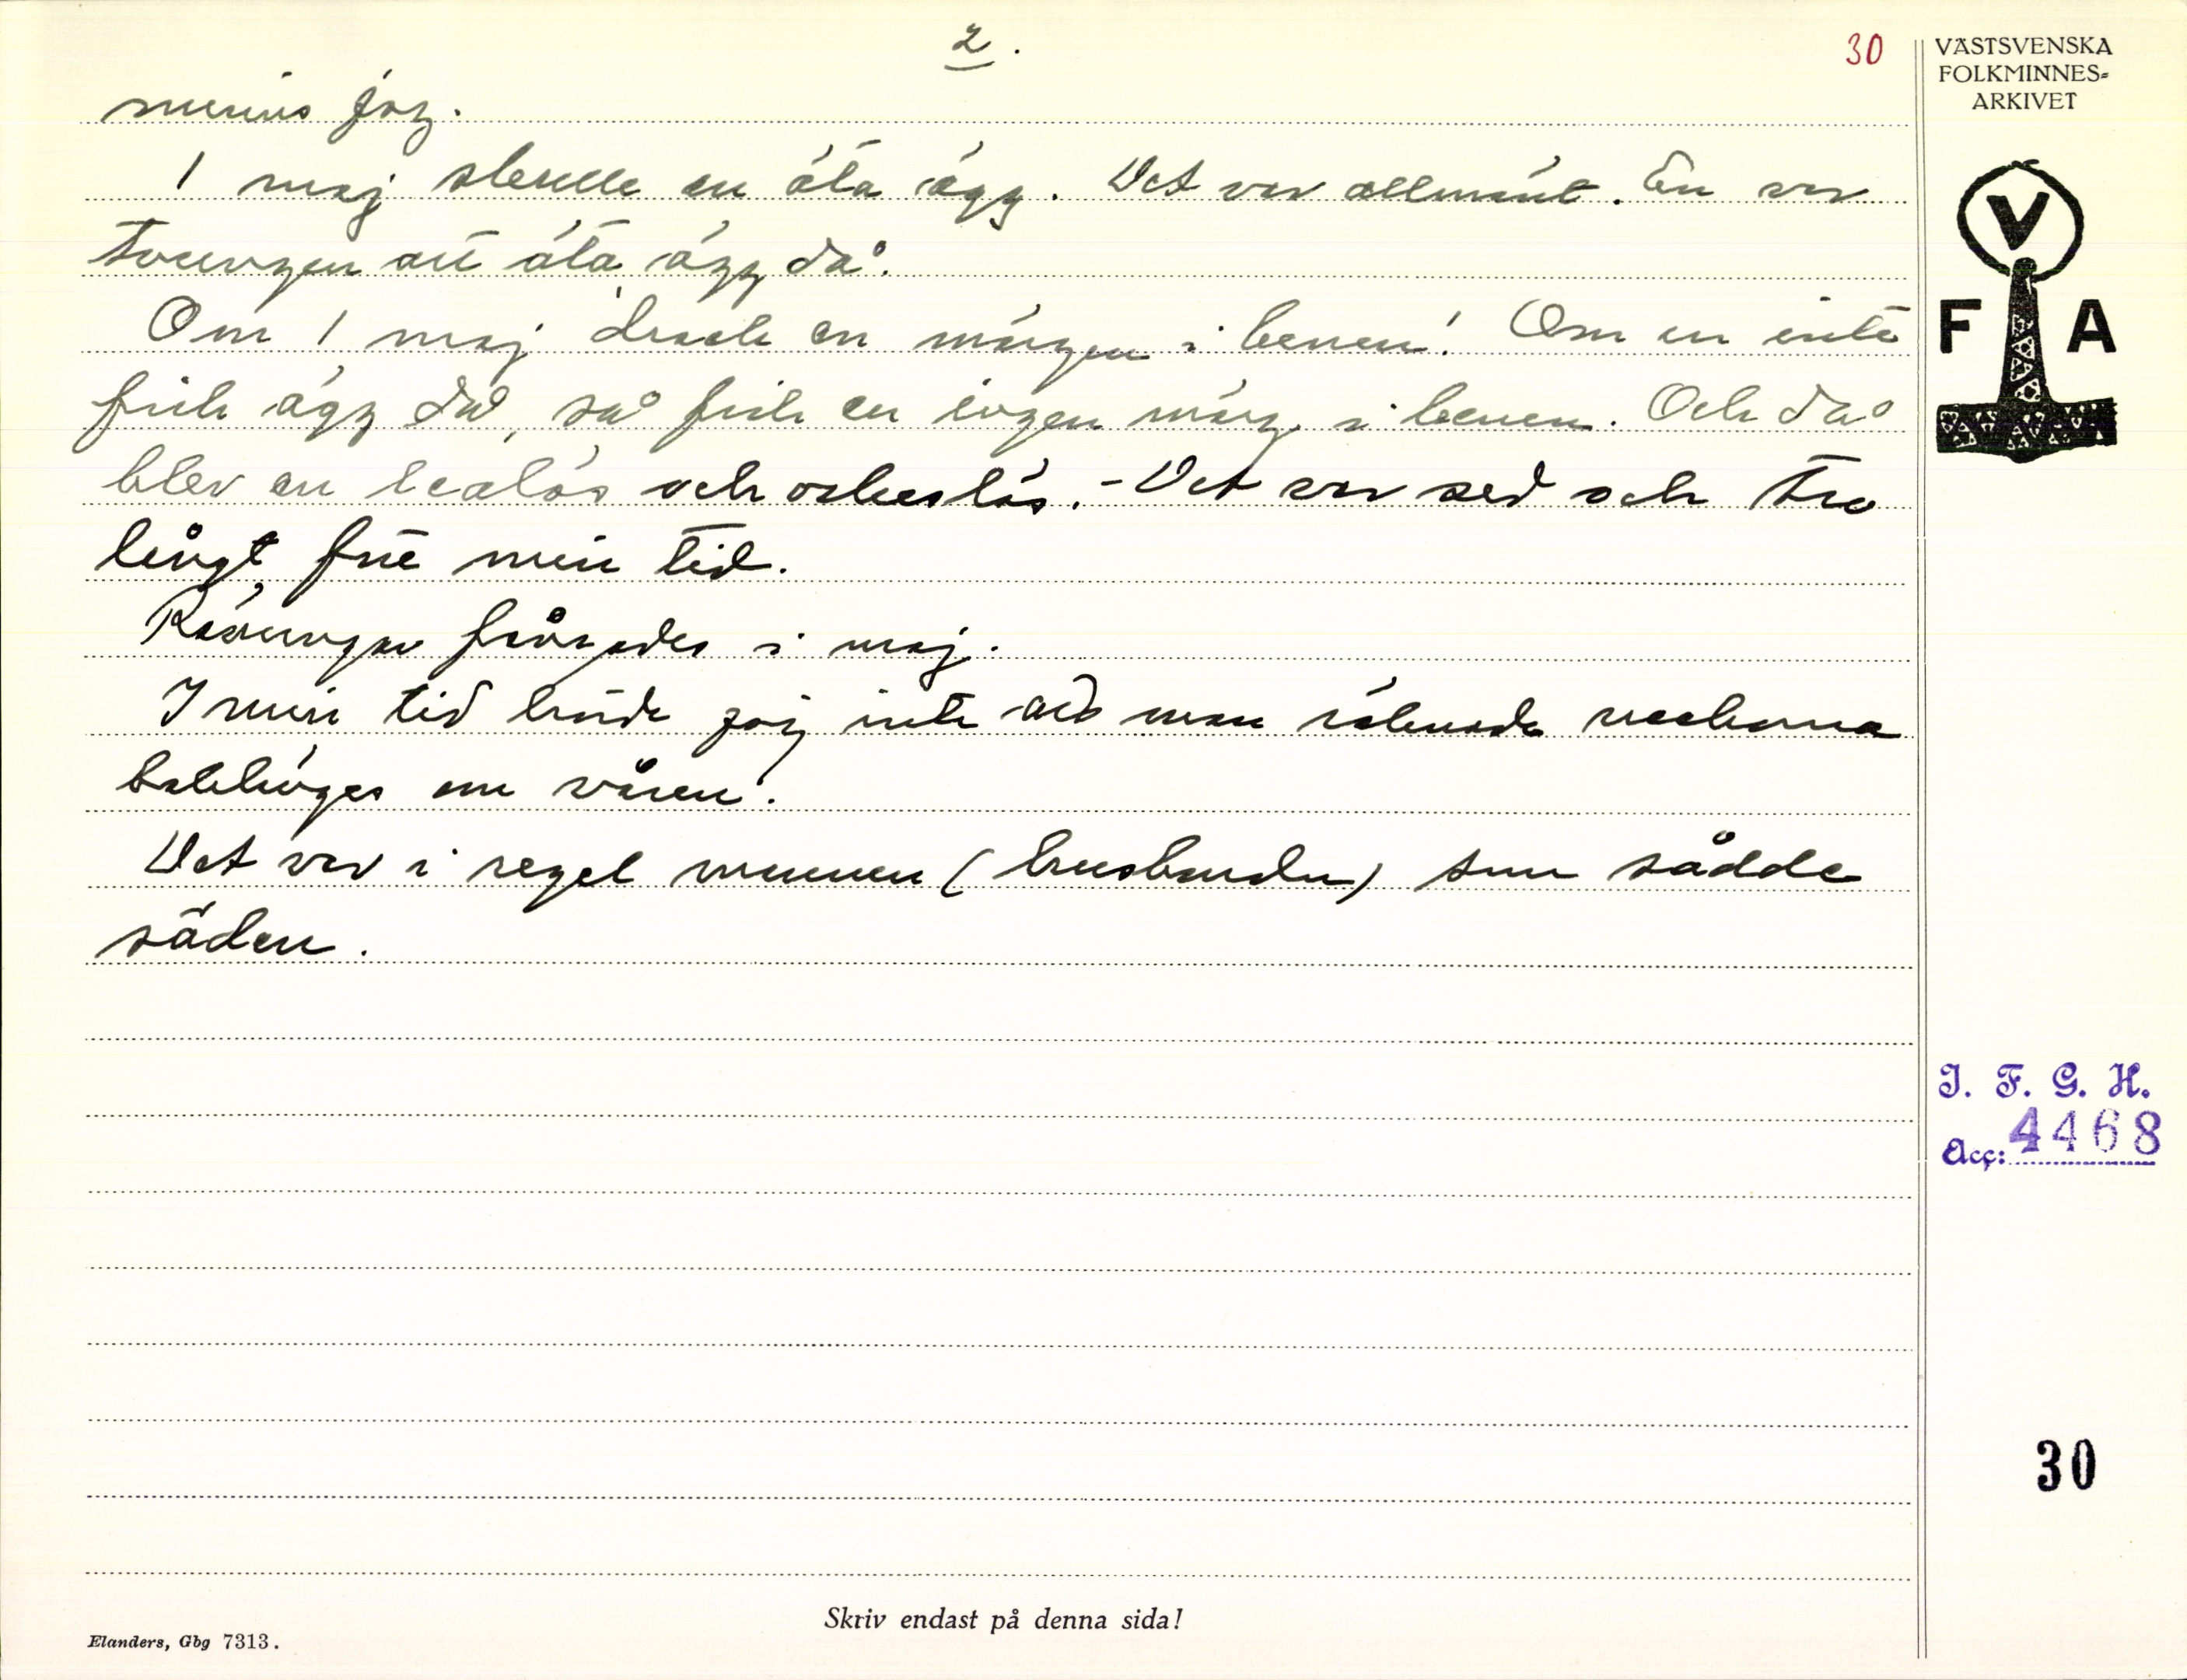 2.
30
minns jag.
1 maj skulle en äta ägg. Det var allmänt. En var
tvungen att äta ägg då.
Om 1 maj drack en märgen i benen! Om en inte
fick ägg då, så fick en ingen märg i benen. Och då
blev en lealös och orkeslös. - Det var sed och tro
långt före min tid.
Rävungar fångades i maj.
I min tid hände jag inte att man räknade veckorna
baklänges om våren.
Det var i regel mannen (husbonden) som sådde
säden.
VÄSTSVENSKA
FOLKMINNES=
ARKIVET
V
F A
I. F. G. H.
Acc: 4468
30
Skriv endast på denna sida!
Elanders, Gbg 7313.